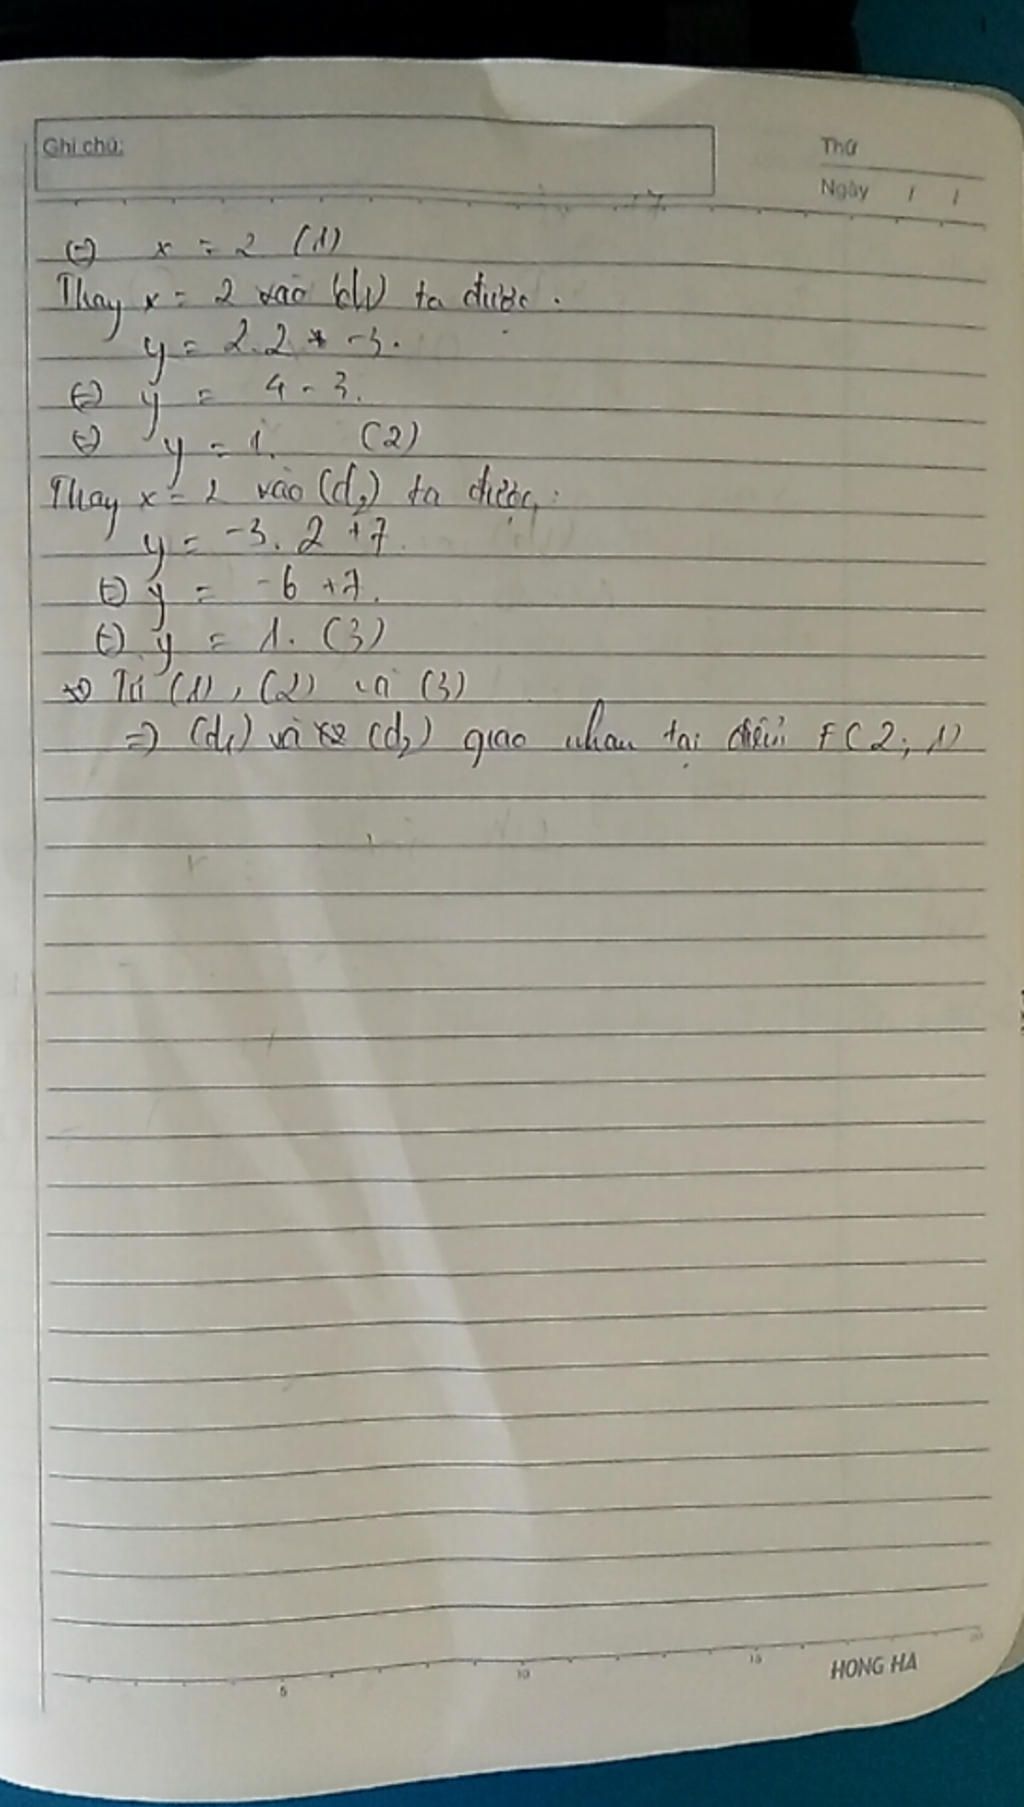 Ghi chú:
Thứ
Ngày / /
⇔ x = 2 (1)
Thay x = 2 vào (d1) ta được.
y = 2.2 -3.
⇔ y = 4 - 3.
⇔ y = 1. (2)
Thay x = 2 vào (d2) ta được:
y = -3.2 +7.
⇔ y = -6 +7.
⇔ y = 1. (3)
Từ (1), (2) và (3)
=> (d1) và (d2) giao nhau tại điểm F(2; 1)
5 10 15 20
HONG HA